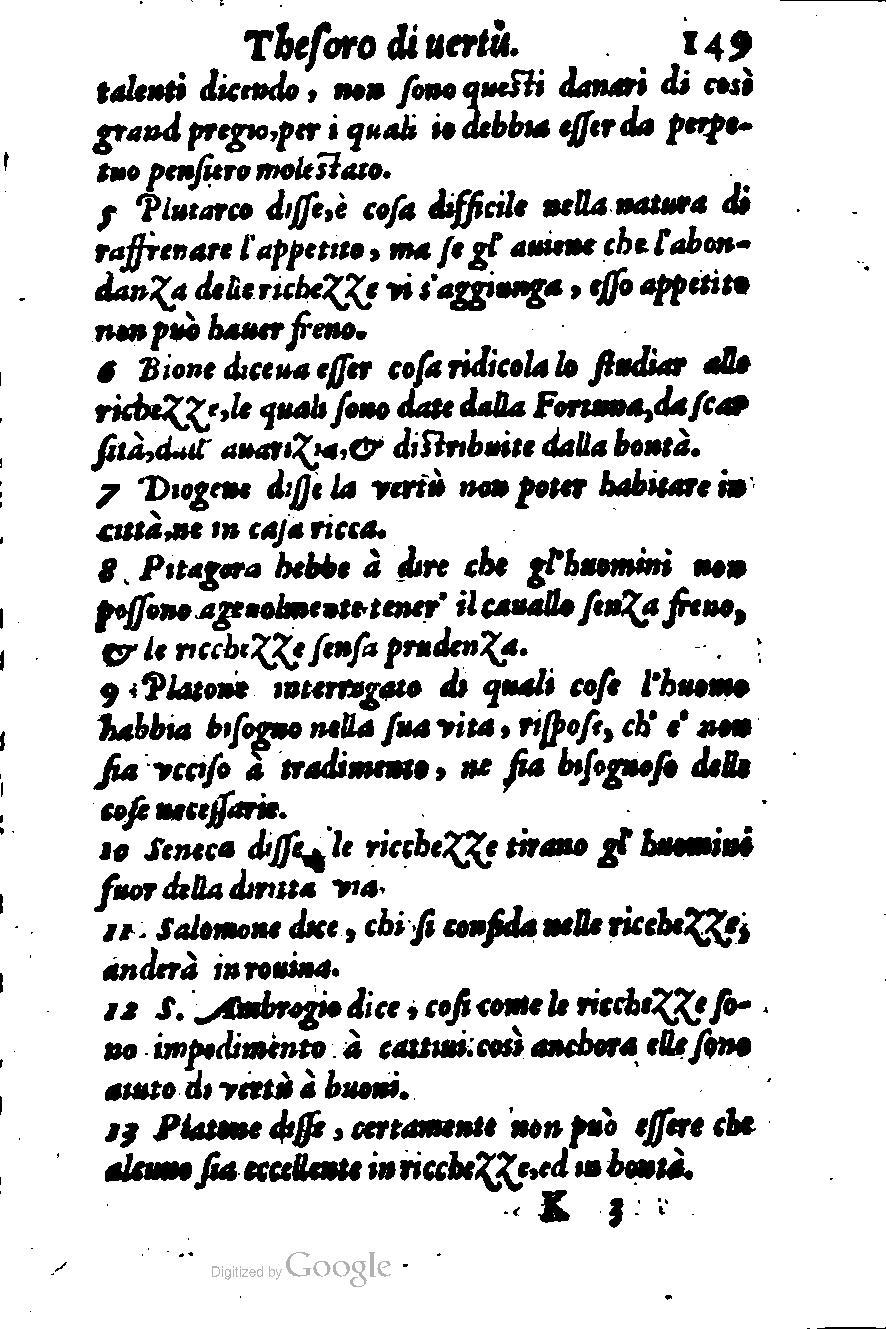 Thesoro di uertù. 149
talenti dicendo, non sono questi danari di così
grand pregio, per i quali io debbia esser da perpe-
tuo pensiero molestato.
5 Plutarco disse, è cosa difficile nella natura di
raffrenare l'appetito, ma se gl' auiene che l'abon-
danza delle richezze vi s'aggiunga, esso appetito
non può hauer freno.
6 Bione diceua esser cosa ridicola lo studiar alle
richezze, le quali sono date dalla Fortuna, da scar
sità, dall' auarizia, & distribuite dalla bontà.
7 Diogene disse la vertù non poter habitare in
città, ne in casa ricca.
8 Pitagora hebbe à dire che gl'huomini non
possono ageuolmente tener' il cauallo senza freno,
& le ricchezze sensa prudenza.
9 Platone interrogato di quali cose l'huomo
habbia bisogno nella sua vita, rispose, ch' e' non
sia vcciso à tradimento, ne sia bisognoso delle
cose necessarie.
10 Seneca disse, le ricchezze tirano gl' huomini
fuor della diritta via.
11. Salomone dice, chi si confida nelle ricchezze,
anderà in rouina.
12 S. Ambrogio dice, cosi come le ricchezze so-
no impedimento à cattiui: così anchora elle sono
aiuto di vertù à buoni.
13 Platone disse, certamente non può essere che
alcuno sia eccellente in ricchezze, ed in bontà.
K 3
Digitized by Google